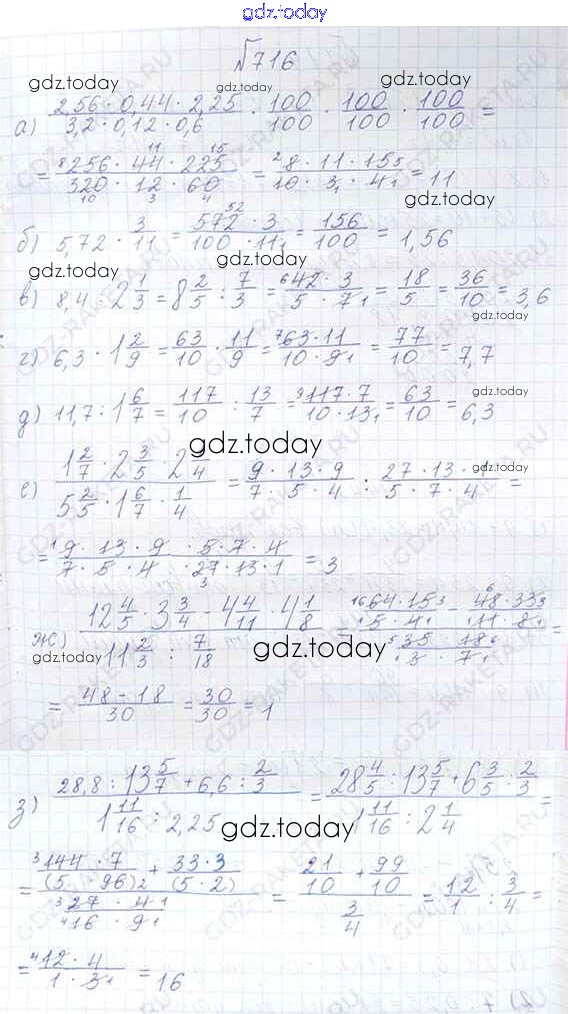 gdz.today
√716
gdz.today gdz.today
а) 2,56 · 0,44 · 2,25 / 3,2 · 0,12 · 0,6 · 100/100 · 100/100 · 100/100 =
= 256 · 44 · 225 / 320 · 12 · 60 = 8 · 11 · 15 / 10 · 3 · 4 = 11
gdz.today
б) 5,72 · 3/11 = 572 · 3 / 100 · 11 = 156/100 = 1,56
gdz.today
в) 8,4 : 2 1/3 = 8 2/5 : 7/3 = 42 · 3 / 5 · 7 = 18/5 = 36/10 = 3,6
gdz.today
г) 6,3 · 1 2/9 = 63/10 · 11/9 = 63 · 11 / 10 · 9 = 77/10 = 7,7
д) 11,7 : 1 6/7 = 117/10 : 13/7 = 117 · 7 / 10 · 13 = 63/10 = 6,3
gdz.today
gdz.today
е) 1 2/7 · 2 3/5 · 2 1/4 / 5 2/5 · 1 6/7 · 1/4 = 9 · 13 · 9 / 7 · 5 · 4 : 27 · 13 · 1 / 5 · 7 · 4 =
gdz.today
= 9 · 13 · 9 · 5 · 7 · 4 / 7 · 5 · 4 · 27 · 13 · 1 = 3
ж) 12 4/5 · 3 3/4 - 4 4/11 · 4 1/8 / 11 2/3 : 7/18 = 64 · 15 / 5 · 4 - 48 · 33 / 11 · 8 / 35 · 18 / 3 · 7 =
gdz.today gdz.today
= 48 - 18 / 30 = 30/30 = 1
з) 28,8 : 13 5/7 + 6,6 : 2/3 / 1 11/16 : 2,25 = 28 4/5 : 13 5/7 + 6 3/5 : 2/3 / 1 11/16 : 2 1/4 =
gdz.today
= 144 · 7 / (5 · 96) + 33 · 3 / (5 · 2) / 27 · 4 / 16 · 9 = 21/10 + 99/10 / 3/4 = 12/1 : 3/4 =
= 12 · 4 / 1 · 3 = 16